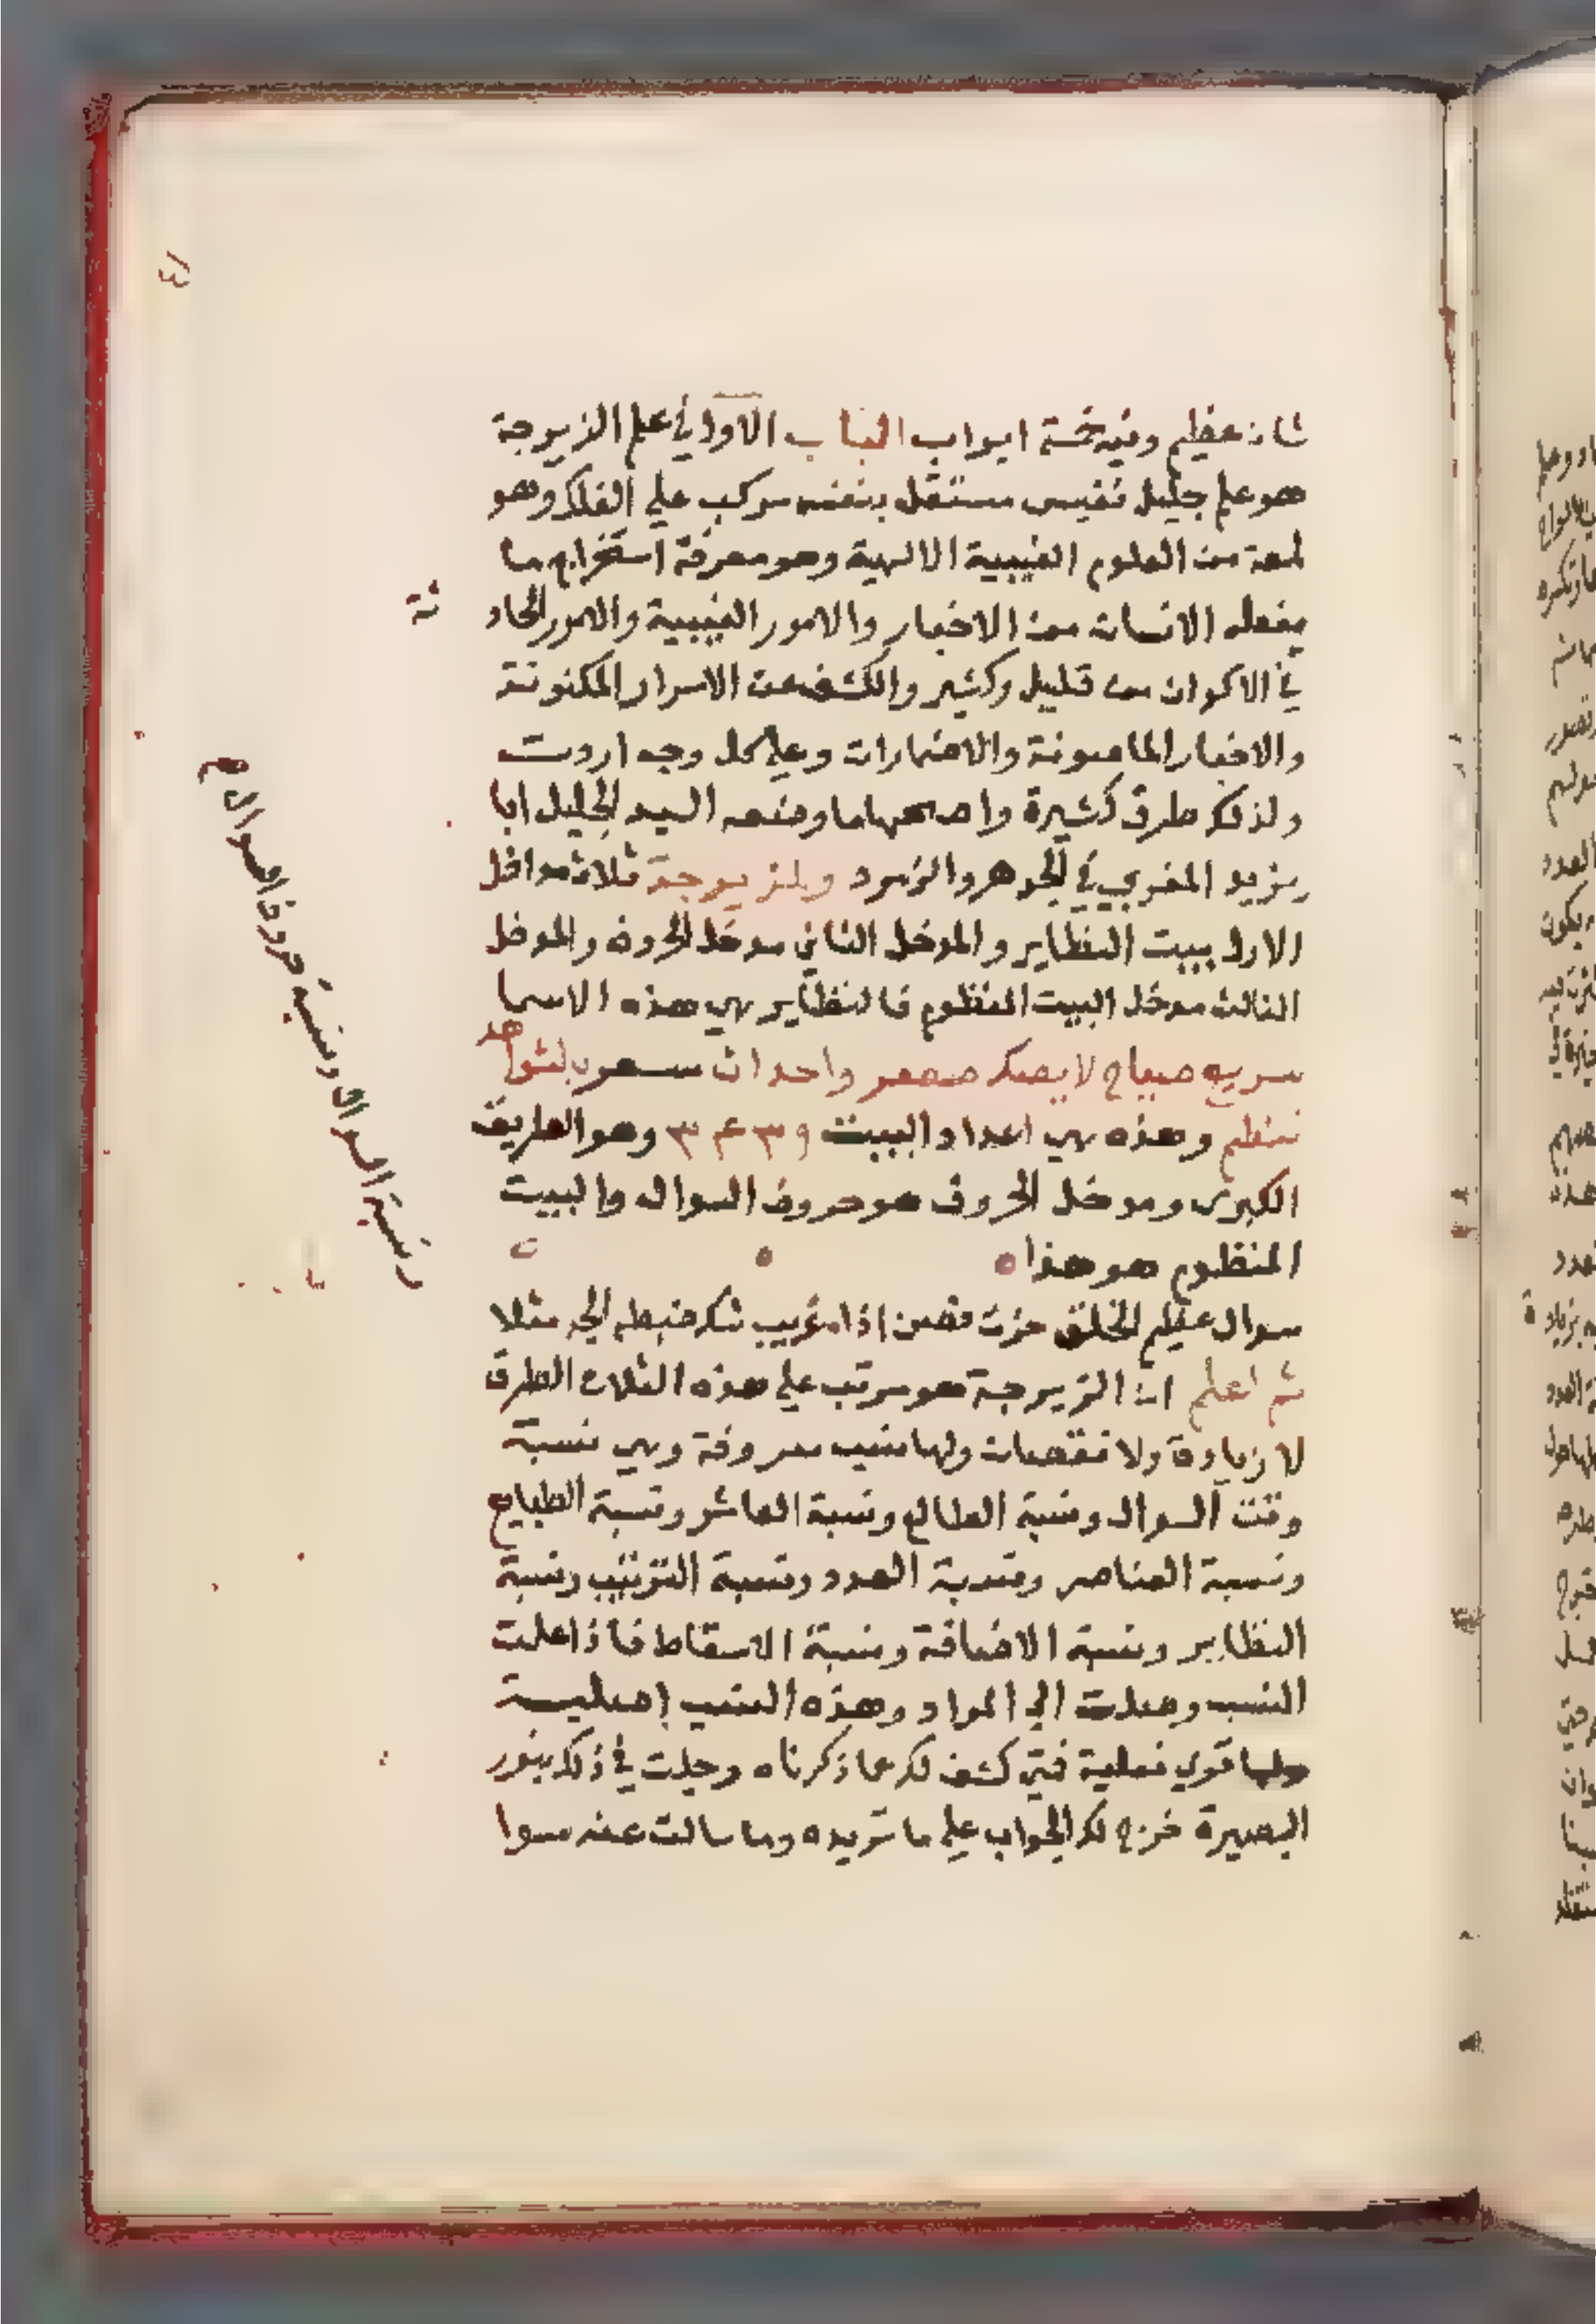 شان عظيم وفيه خمسة ابواب الباب الاول في علم الزيرجة
هو علم جليل نفيس مستقل بنفسه مركب علي الفلك وهو
لمعة من العلوم الغيبية الالهية وهو معرفة استخراج ما
يفعله الانسان من الاخبار والامور الغيبية والامور الحاد
ثة
في الاكوان من قليل وكثير والكشف عن الاسرار المكنونة
والاخبار الماصونة والاضمارات وعلي كل وجه اردت
ولذلك طرق كثيرة واصحها ما وضعه السيد الجليل ابا
يزيد المغربي في الجوهر والزمرد ولمزيرجة ثلاث مداخل
الاول ببيت النظاير والمدخل الثاني مدخل الحروف والمدخل
الثالث مدخل البيت المنظوم فالنظاير هي هذه الاسما
صباح واحد ان
وهذه هي اعداد البيت ٩ ٣ ٤ ٣ وهو الطريق
الكبري ومدخل الحروف هو حروف السوال والبيت
المنظوم هو هذا
سوال عظيم الخلق حزت فصن اذا غريب شك ضبطه الجد مثلا
ثم اعلم ان الزيرجة هو مرتب علي هذه الثلاث الطرق
لا زيادة ولا نقصان ولها نسب معروفة وهي نسبة
وقت السوال ونسبة الطالع ونسبة العاشر ونسبة الطبايع
ونسبة العناصر ونسبة العدد ونسبة الترتيب ونسبة
النظاير ونسبة الاضافة ونسبة الاسقاط فاذا علمت
النسب وصلت الي المراد وهذه النسب اصلية
ولها قوي فعلية فمتي كشف لك عما ذكرناه وجلت في ذلك بنور
البصيرة خرج لك الجواب علي ما تريده وما سالت عنه سوا
ونسبة السوال ونسبة حروف السوال صح